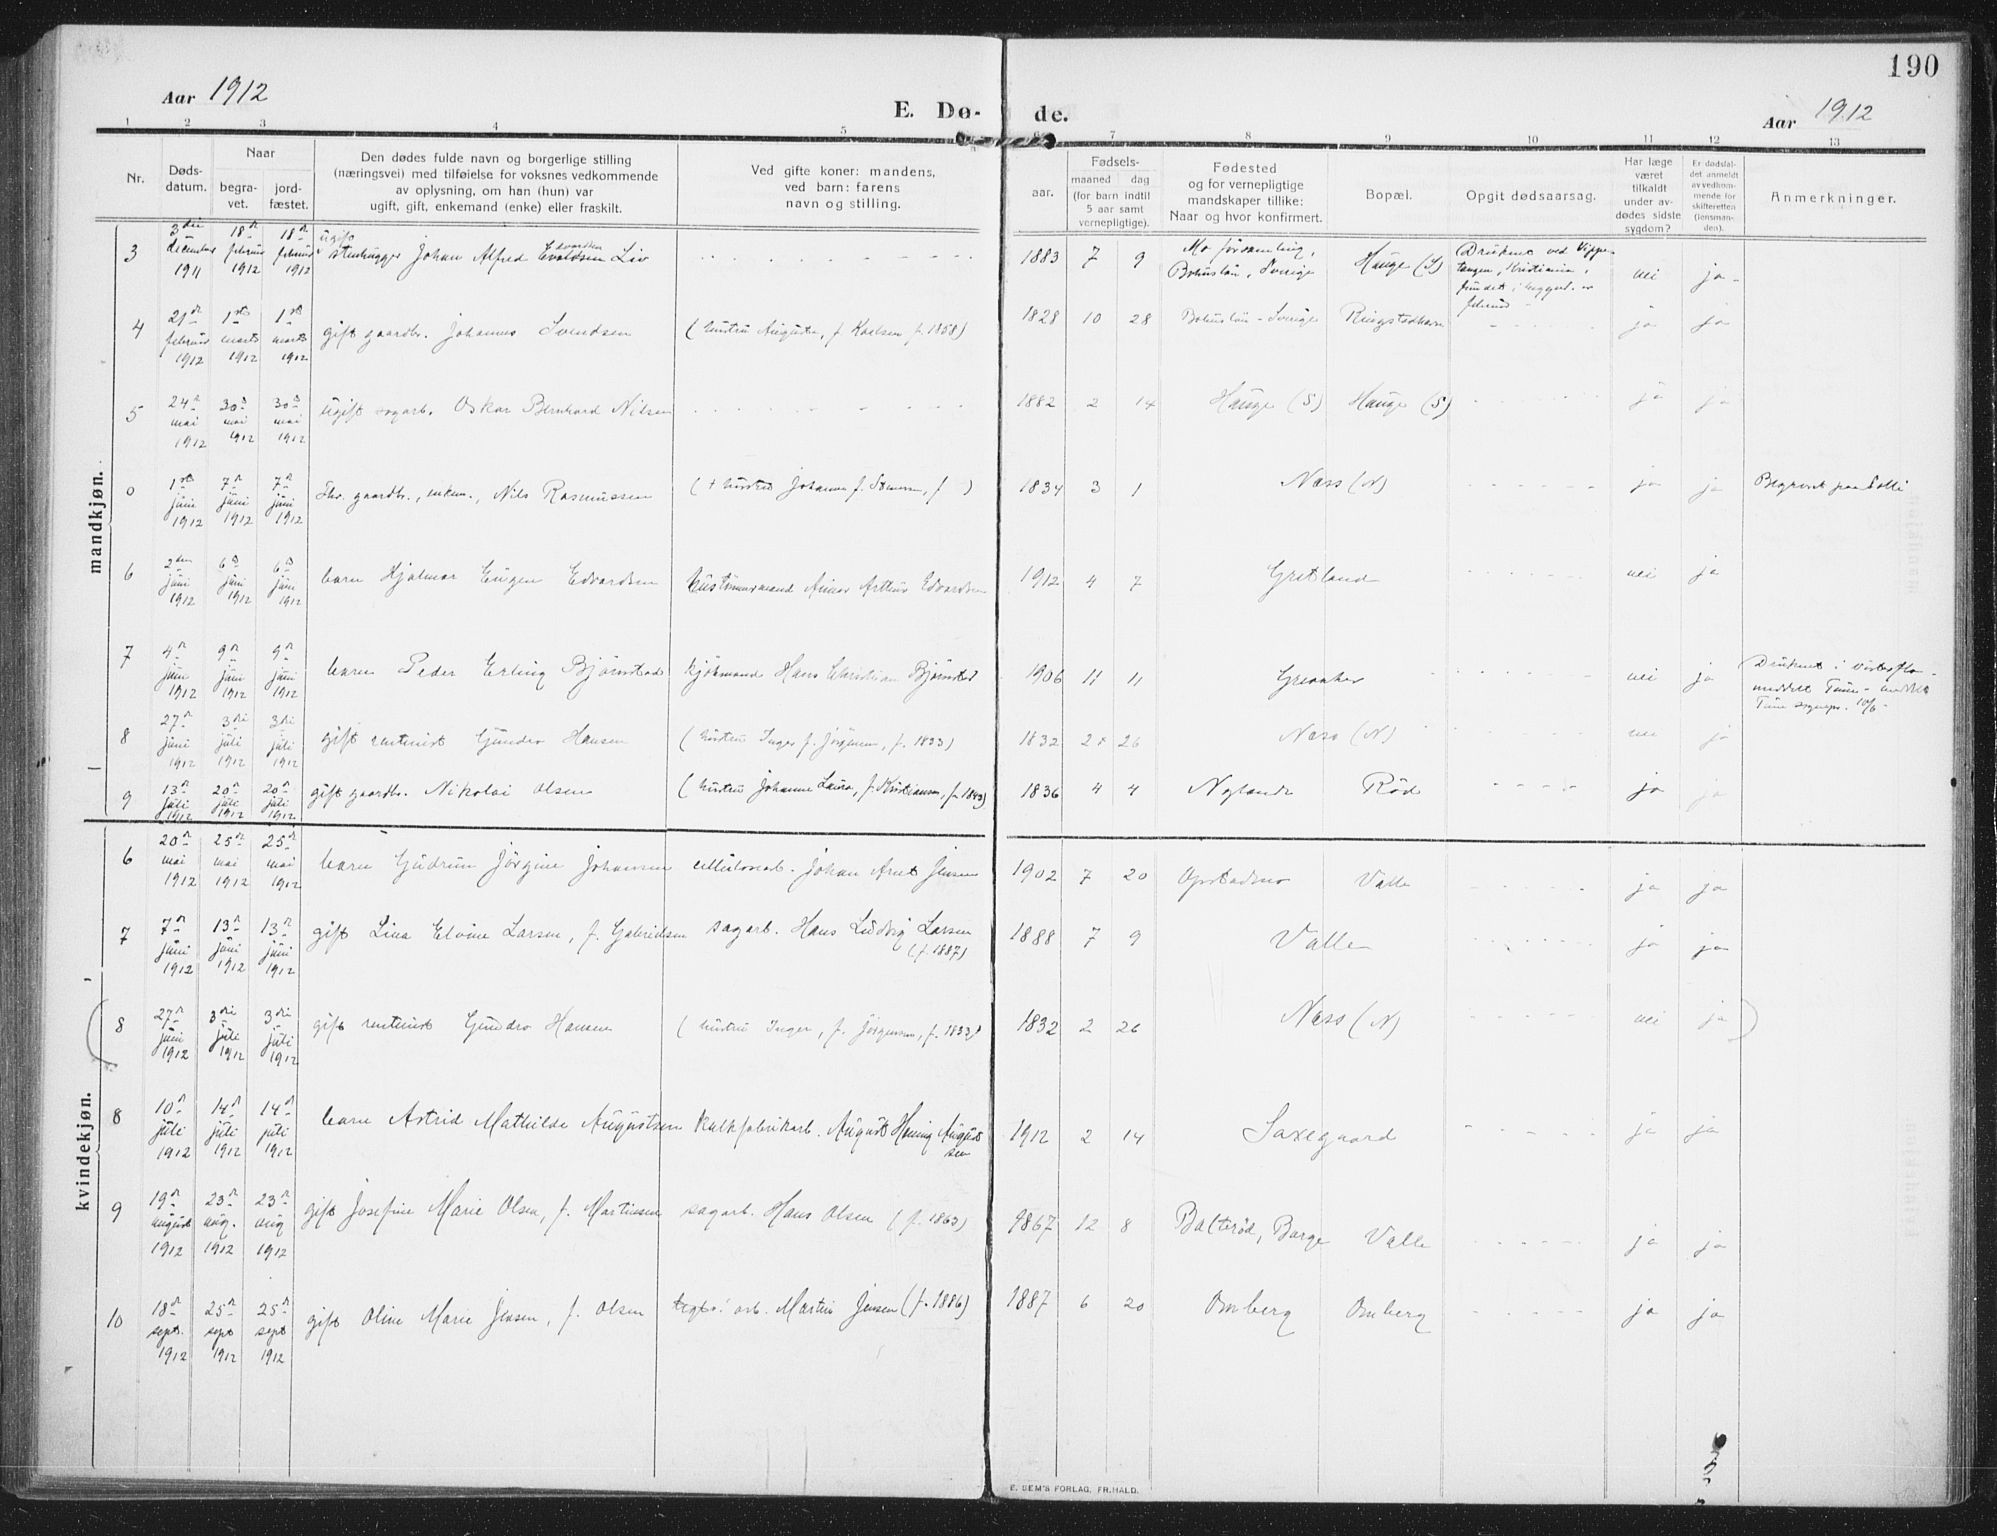 190
Aar 1912
E. Dø-
de.
Aar 1912
1 2 3 4 5 6 7 8 9 10 11 12 13
Nr.
Døds-
datum.
Naar
begra-
vet.
jord-
fæstet.
Den dødes fulde navn og borgerlige stilling
(næringsvei) med tilføielse for voksnes vedkommende
av oplysning, om han (hun) var
ugift, gift, enkemand (enke) eller fraskilt.
Ved gifte koner: mandens,
ved barn: farens
navn og stilling.
Fødsels-
aar.
maaned dag
(for barn indtil
5 aar samt
vernepligtige).
Fødested
og for vernepligtige
mandskaper tillike:
Naar og hvor konfirmert.
Bopæl.
Opgit dødsaarsag.
Har læge
været
tilkaldt
under av-
dødes sidste
sygdom?
Er dødsfal-
det anmeldt
av vedkom-
mende for
skifteretten
(lensman-
den).
Anmerkninger.
mandkjøn.
3 3die december 1911 18de februar 1912 18de februar 1912 ugift stenhugger Johan Alfred Evaldsen Edvardsen 1883 7 9 Mo forsamling, Bohuslän, Sverige Hauge (S) Druknet ved Vippe-
tangen, Kristiania,
fundet i februar nei ja
4 21de februar 1912 1ste marts 1912 1ste marts 1912 gift gaardbr. Johannes Svendsen (hustru Augusta, f. Karlsen, f. 1858) 1828 10 28 Bohuslän - Sverige ja ja
5 24de mai 1912 30de mai 1912 30de mai 1912 ugift sagarb. Oskar Bernhard Nilsen 1882 2 14 Hauge (S) Hauge (S) ja ja
0 1ste juni 1912 7de juni 1912 7de juni 1912 fhv. gaardbr., enkem., Nils Rasmussen († hustru Johanne f. , f. ) 1834 3 1 Næss (N) ja ja Begravet paa Solli
6 2den juni 1912 6te juni 1912 6te juni 1912 barn Hjalmar Eugen Edvardsen Arthur Edvardsen 1912 4 7 Gretland nei ja
7 4de juni 1912 9de juni 1912 9de juni 1912 barn Peder Erling Bjørnstad kjøbmand Hans Christian Bjørnstad 1906 11 11 Greaaker nei ja Druknet i
Tune - meddelt
Tune sognepr. 10/6 -
8 27de juni 1912 3die juli 1912 3die juli 1912 gift rentenist Gunder Hansen (hustru Inger f. Jørgensen, f. 1833) 1832 2 26 Næss (N) nei ja
9 13de juli 1912 20de juli 1912 20de juli 1912 gift gaardbr. Nikolai Olsen (hustru Johanne Laura, f. Kristiansen, f. 1843) 1836 4 4 Nylande Rød ja ja
kvindekjøn.
6 20de mai 1912 25de mai 1912 25de mai 1912 barn Gudrun Jørgine Johansen cellulosearb. Johan Arnt Jensen 1902 7 20 Opstadmo Valle ja ja
7 7de juni 1912 13de juni 1912 13de juni 1912 gift Lina Elvine Larsen, f. Gabrielsen sagarb. Hans Ludvig Larsen
(f. 1887) 1888 7 9 Valle ja ja
(8 27de juni 1912 3die juli 1912 3die juli 1912 gift rentenist Gunder Hansen (hustru Inger, f. Jørgensen, f. 1833) 1832 2 26 Næss (N) nei ja)
8 10de juli 1912 14de juli 1912 14de juli 1912 barn Astrid Mathilde Augustsen kalkfabrikarb. August Hening August
sen 1912 2 14 Saxegaard ja ja
9 19de august 1912 23de aug. 1912 23de aug 1912 gift Josefine Marie Olsen, f. Martinsen sagarb. Hans Olsen (f. 1863) 1867 12 8 Balterød, Borge Valle ja ja
10 18de sept. 1912 25de sept 1912 25de sept 1912 gift Oline Marie Jensen, f. Olsen arb. Martin Jensen (f. 1886) 1887 6 20 Omberg Omberg ja ja
E. SEM'S FORLAG, FR.HALD.